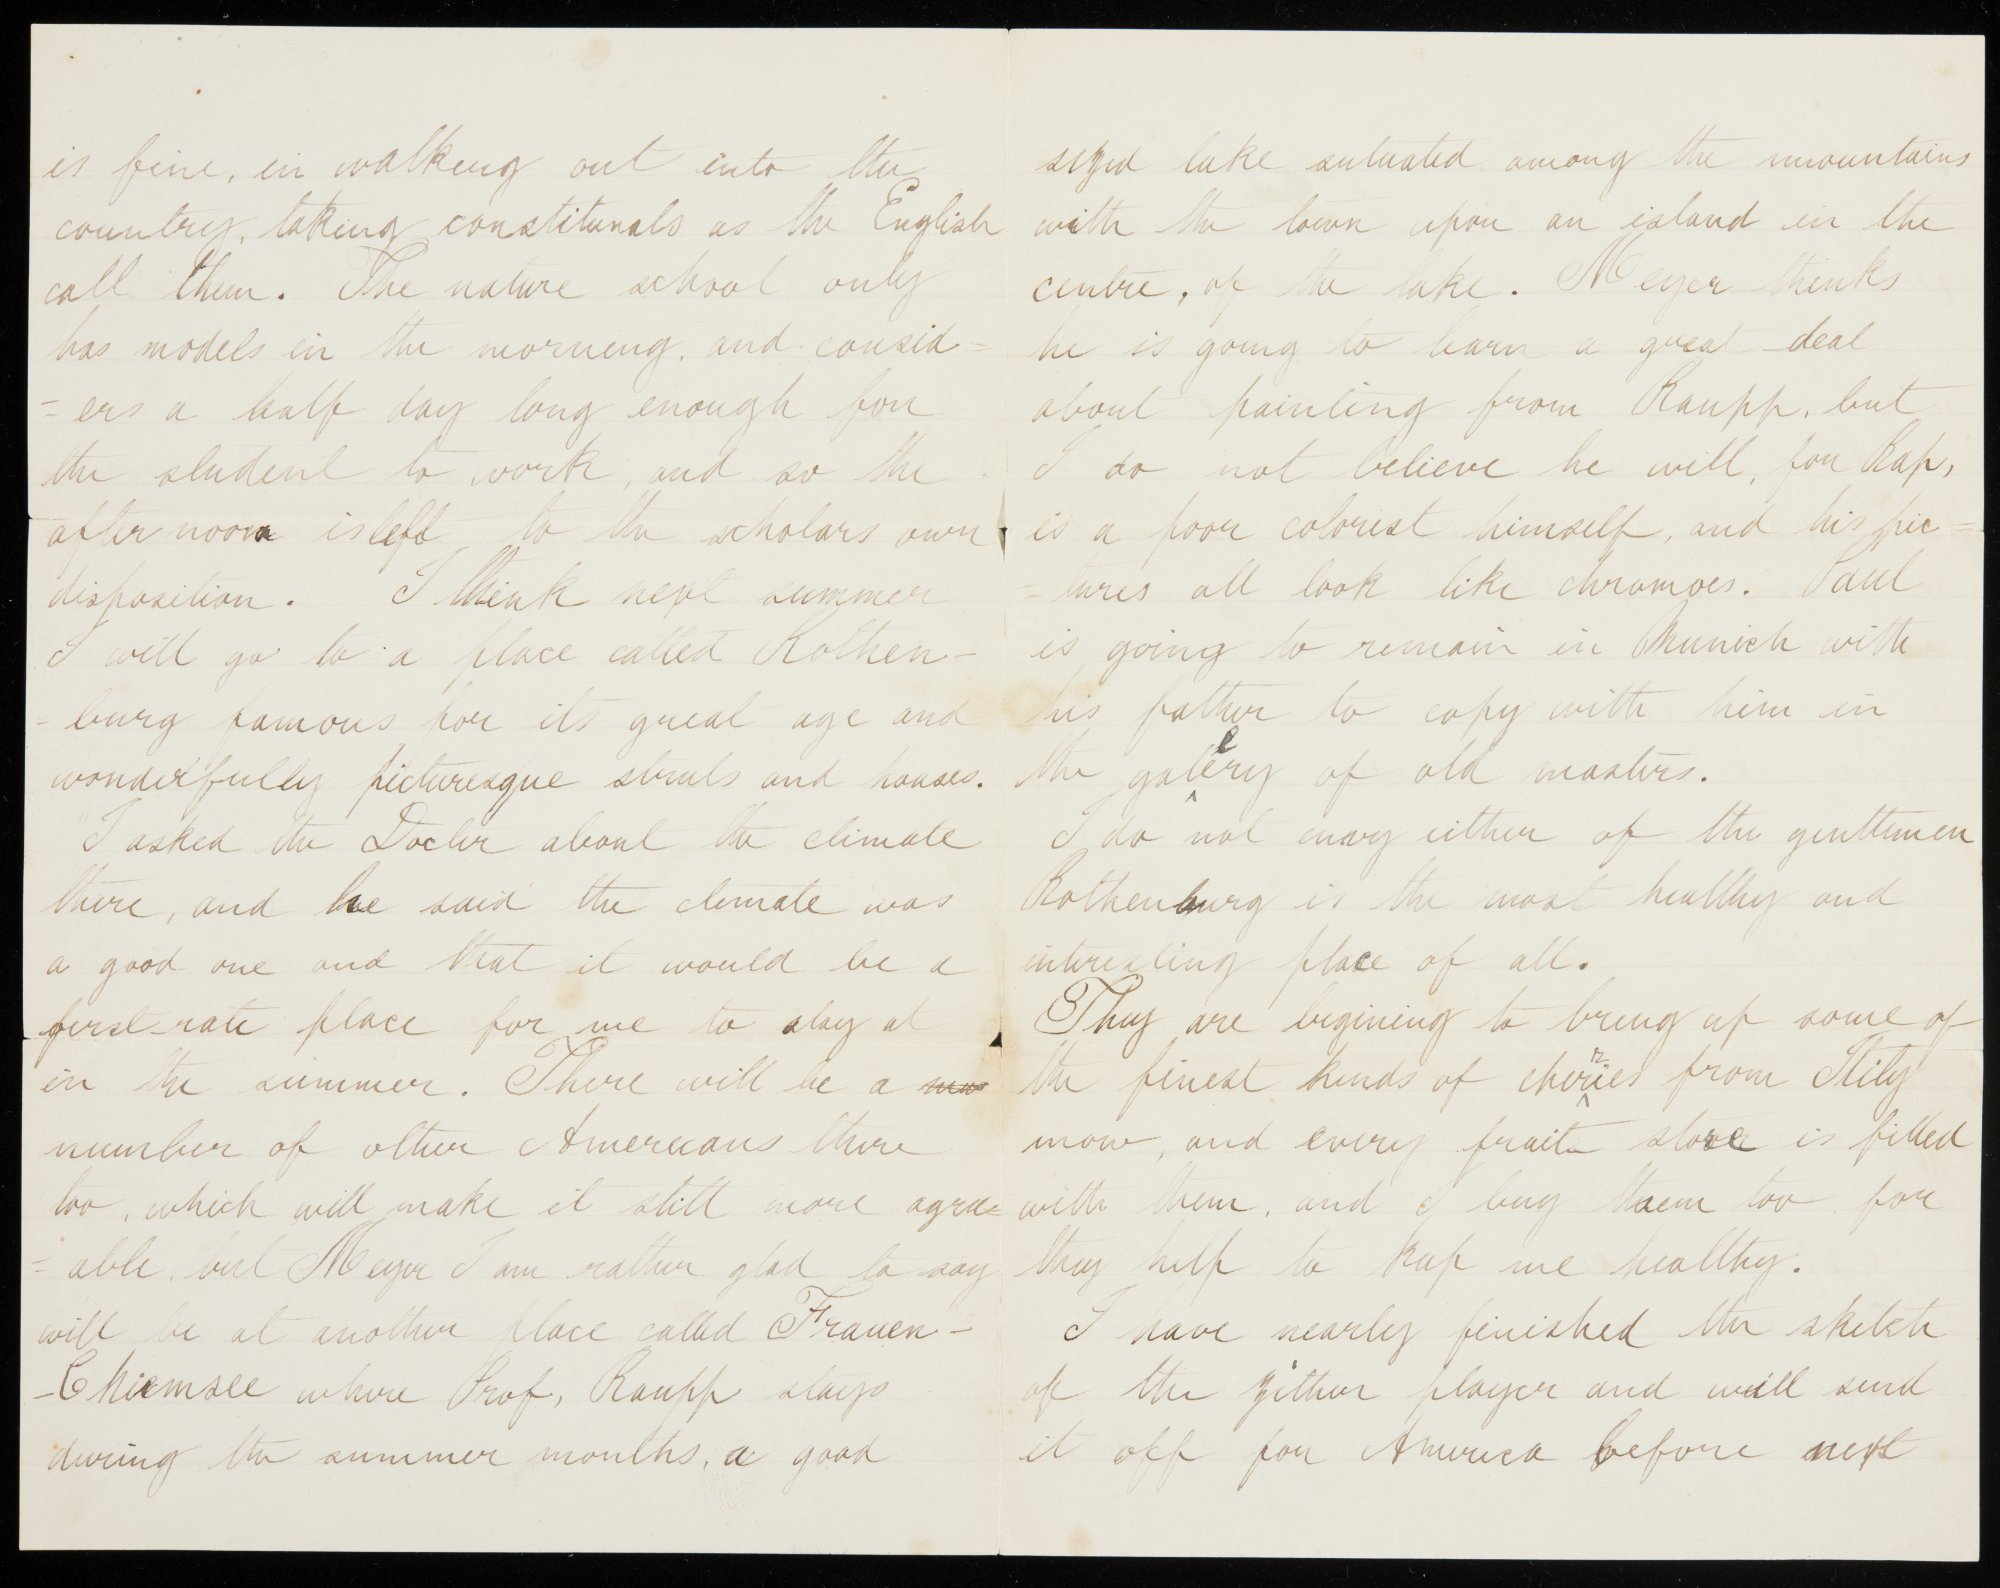 is fine, in walking out into the
country, taking constitunals as the English
call them. The nature school only
has models in the morning, and consid=
=ers a half day long enough for
the student to work, and so the
after noon is left to the scholars own
disposition. I think next summer
I will go to a place called Rothen-
=burg famous for its great age and
wonderfully picturesque streets and houses.
I asked the Docter about the climate
there, and he said the climate was
a good one and that it would be a
first-rate place for me to stay at
in the summer. There will be a
number of other Americans there
too, which will make it still more agree=
=able, but Meyer I am rather glad to say
will be at another place called Frauen-
-Chiemsee where Prof, Raupp stays
during the summer months, a good
sized lake situated among the mountains
with the town upon an island in the
centre, of the lake. Meyer thinks
he is going to learn a great deal
about painting from Raupp, but
I do not believe he will, for Rap,
is a poor colorist himself, and his pic=
=tures all look like chromoes. Paul
is going to remain in Munich with
his father to copy with him in
the gallery of old masters.
I do not envy either of the genttimen
Rothenburg is the most healthy and
interesting place of all.
They are begining to bring up some of
the finest kinds of cherries from Itily
now, and every fruit store is filled
with them, and I buy them too for
they help to keep me healthy.
I have nearly finished the sketch
of the zither player and will send
it off for America before next